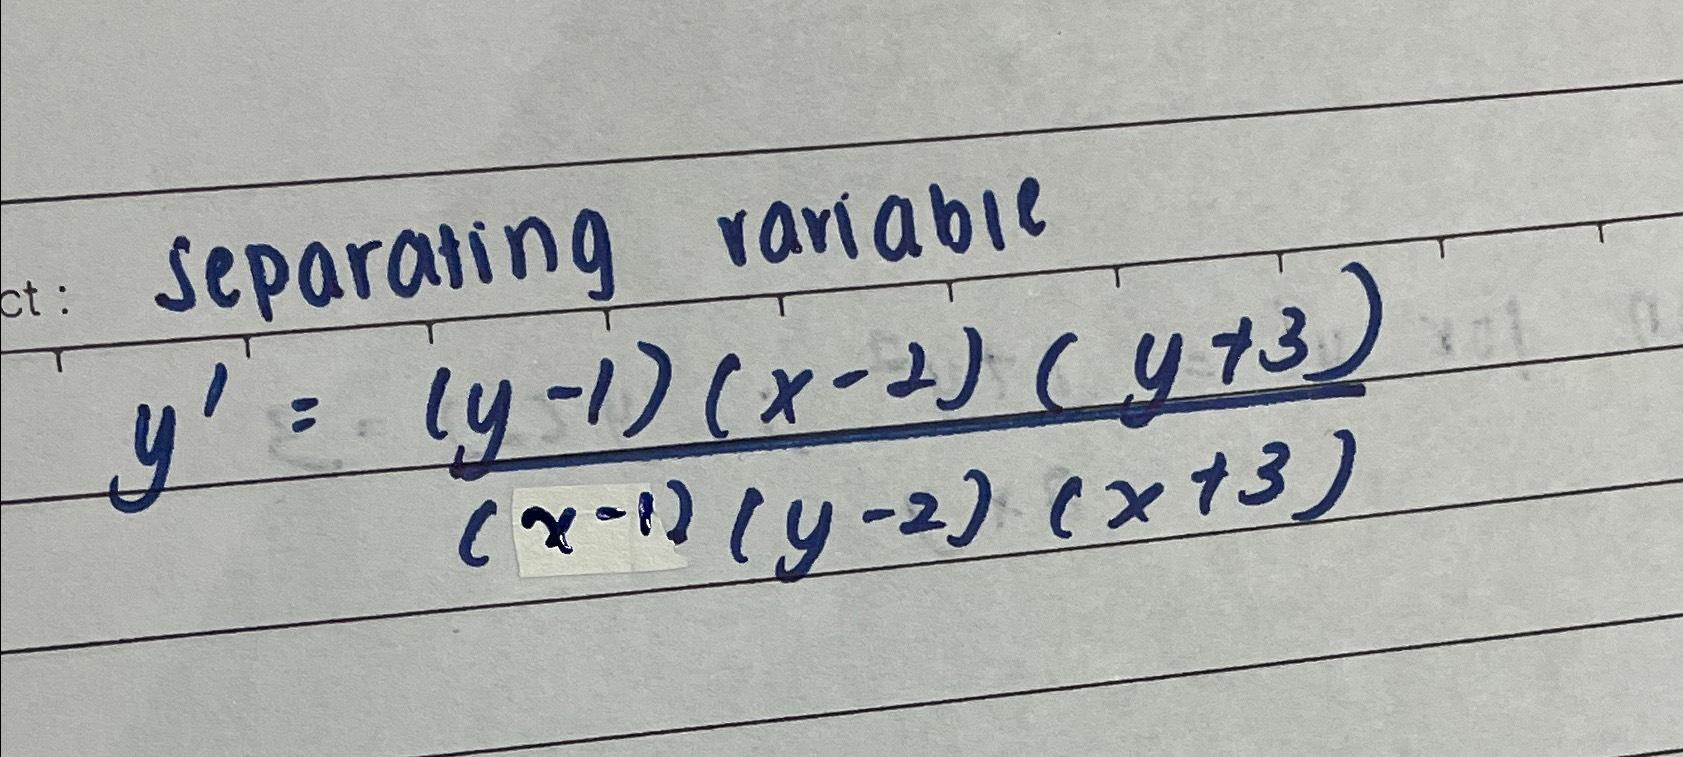 ct: separating variable
y' = (y-1)(x-2)(y+3)
(x-1)(y-2)(x+3)